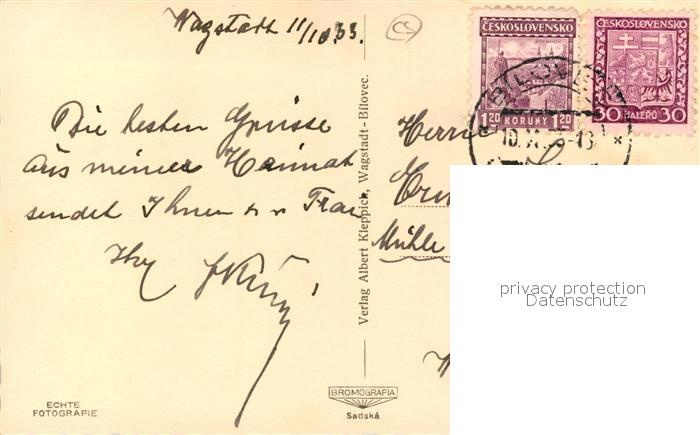 Wagstadt 11/10 33.
Die besten Grüsse
aus meiner Heimat
sendet Ihnen u. Frau
Ihr
Herrn
Mühle
Verlag Albert Kleppick, Wagstadt-Bílovec.
ČESKOSLOVENSKO
1.20 KORUNY 1.20
ČESKOSLOVENSKO
30 HALÉŘŮ 30
BÍLOVEC
privacy protection
Datenschutz
ECHTE
FOTOGRAFIE
BROMOGRAFIA
Sadská